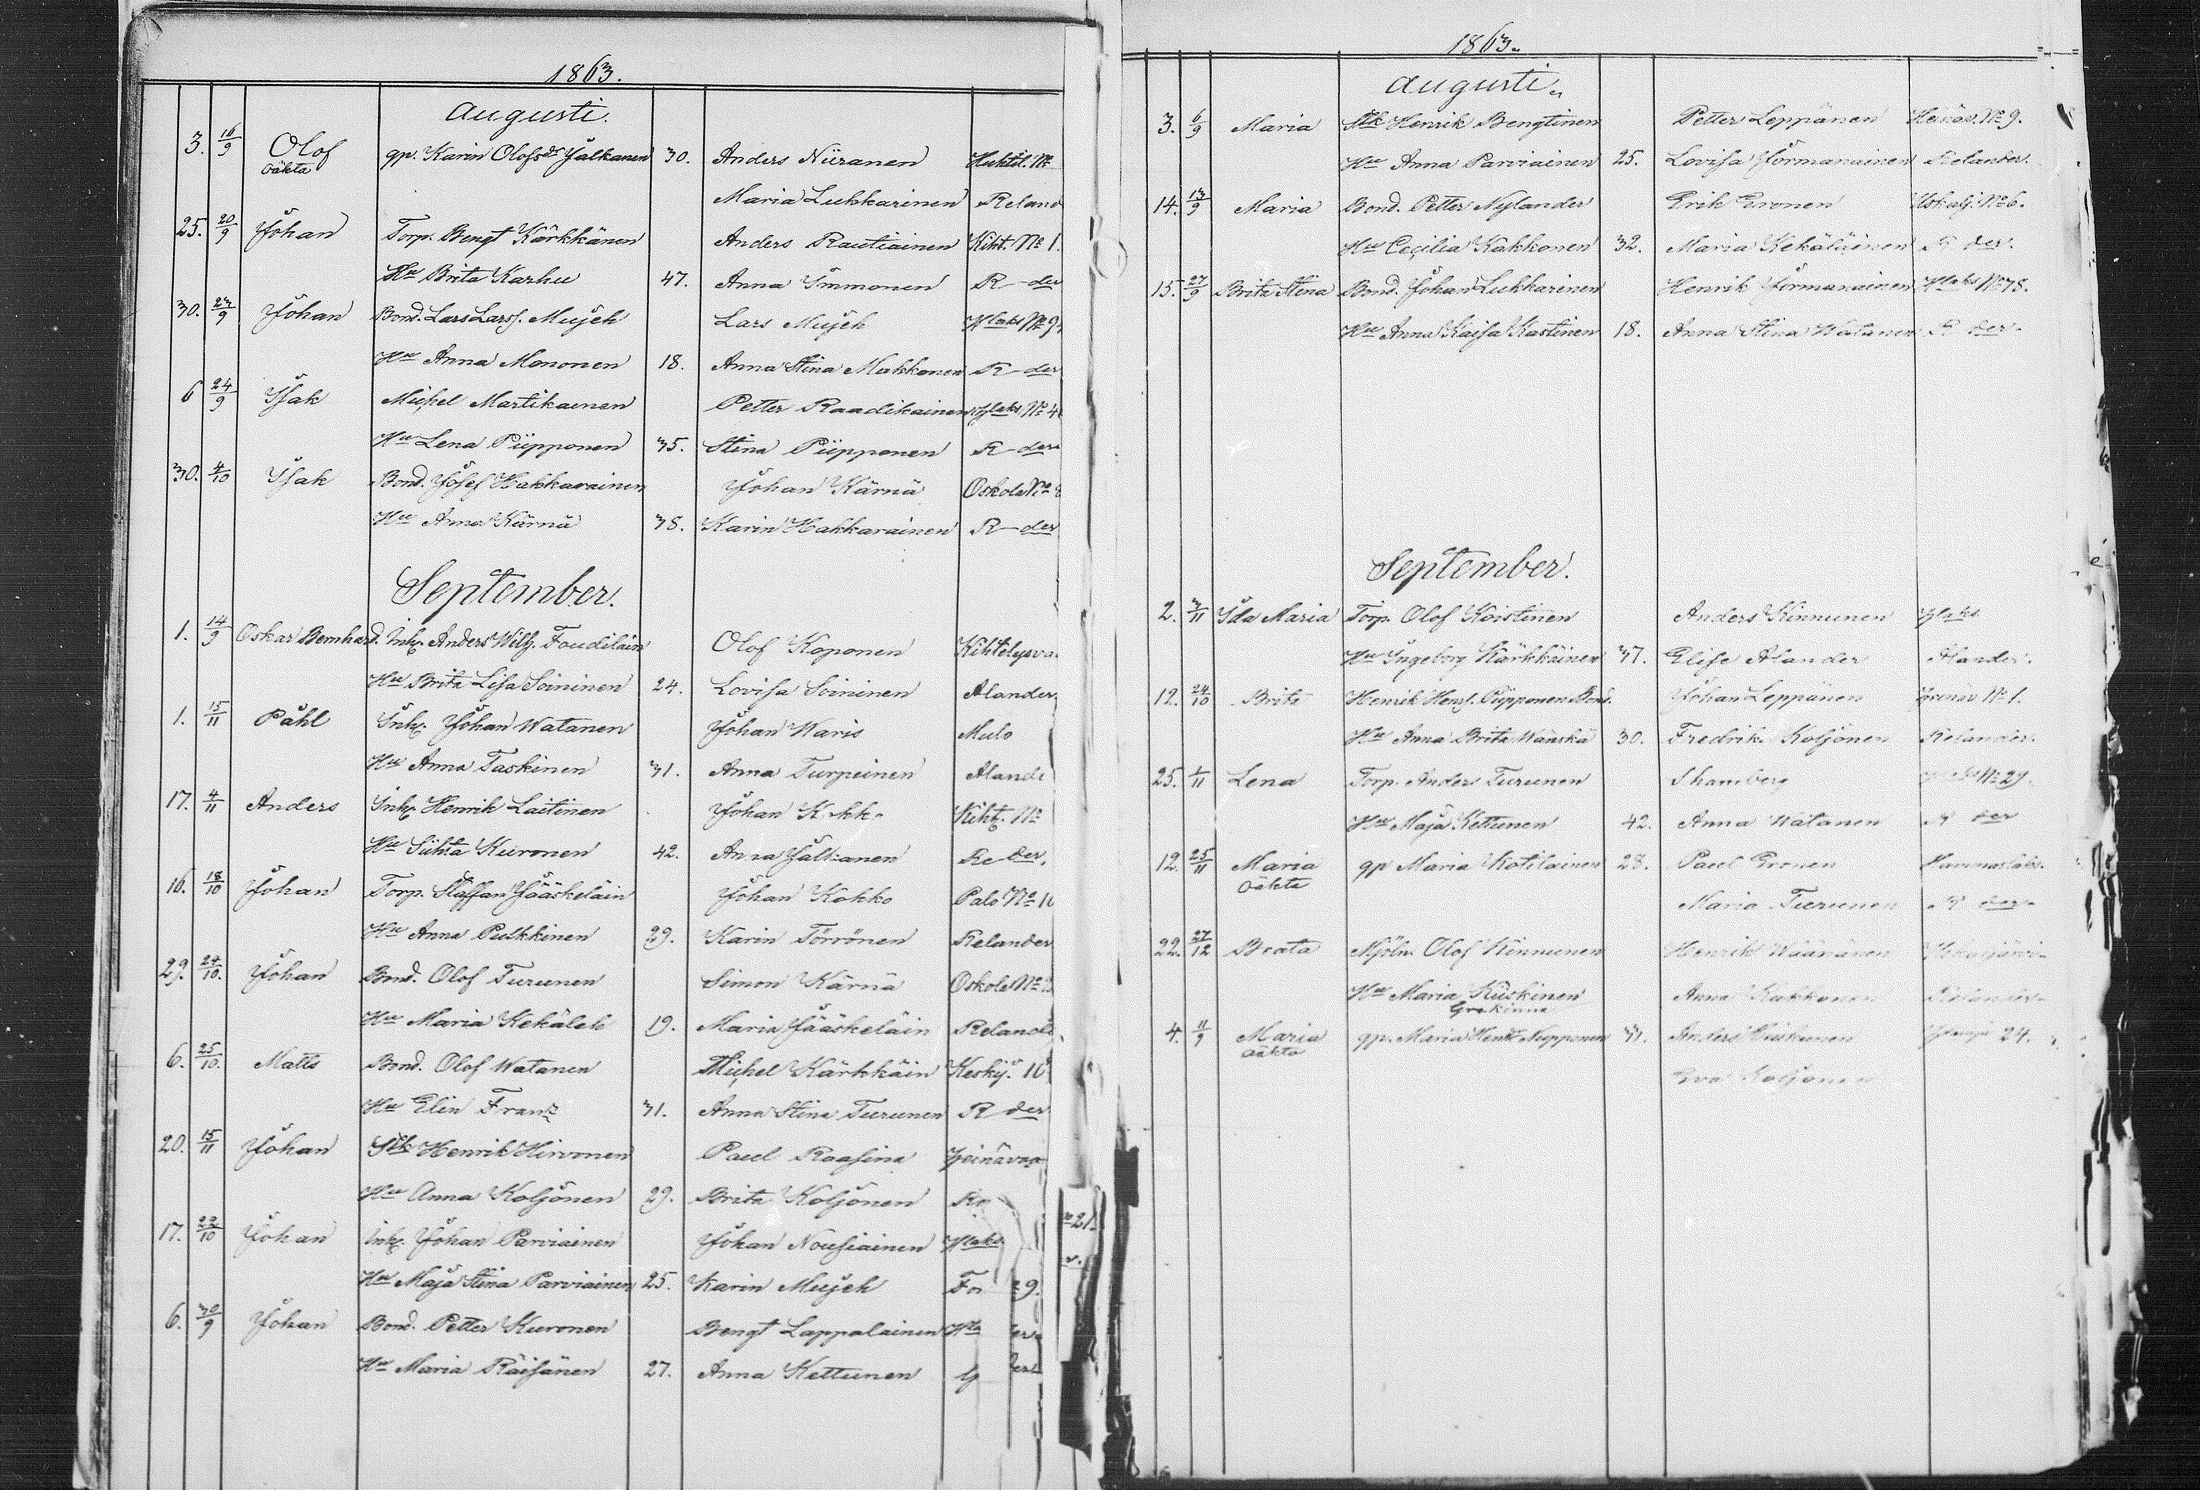 1863.
Augusti.
3. 16/9 Olof gp. Karin Olofsdr Jalkanen 30. Anders Niiranen
oäkta Maria Lukkarinen Reland
25. 20/9 Johan Torp. Bengt Kärkkänen Anders Rautiainen Kiht. No 1.
Hu Brita Karhu 47. Anna Immonen R der
30. 23/9 Johan Bond. Lars Larss. Mujeh Lars Mujeh
Hu Anna Mononen 18. Anna Stina Makkonen R der
6 24/9 Isak Michel Martikainen Petter Raadikainen
Hu Lena Piipponen 35. Stina Piipponen R der
30. 4/10 Isak Bond. Josef Hakkarainen Johan Kärnä Oskola No
Hu Anna Kärnä 38. Karin Hakkarainen R der
September.
1. 14/9 Oskar Bernhard. Inh. Anders Wilh. Foudiláin Olof Koponen Kihtelysva
Hu Brita Lisa Soininen 24. Lovisa Soininen Alander
1. 15/11 Påhl Inh. Johan Watanen Johan Waris Mulo
Hu Anna Taskinen 31. Anna Turpeinen Alande
17. 4/11 Anders Inh. Henrik Laitinen Johan Kiht. No
Hu Kuronen 42. Anna Jalkanen Re der.
16. 18/10 Johan Torp. Staffan Jääskeläin Johan Kokko Palo No 10
Hu Anna Pulkkinen 29. Karin Törrönen Relander
29. 24/10. Johan Bond. Olof Turunen Simon Kärnä Oskola No
Hu Maria Kekäleh 19. Maria Jääskeläin Relande
6. 25/10. Matts Bond. Olof Watanen Michel Kärkkäin Keskij. 10
Hu Elin Franz 31. Anna Stina Turunen R der
20. 15/11 Johan Henrik Hirvonen Paul Raasina Heinävaa
Hu Anna Koljonen 29. Brita Koljonen
17. 22/10 Johan Inh. Johan Parviainen Johan Nousiainen
Hu Maja Stina Parviainen 25. Karin Mujeh 9.
6. 30/9 Johan Bond. Petter Kuronen Bengt Lappalainen
Hu Maria Räisänen 27. Anna Kettunen
1863.
Augusti.
3. 6/9 Maria Henrik Bengtinen Petter Leppänen Heinäv. No 9.
Hu Anna Parviainen 25. Lovisa Jormanainen Relander.
14. 13/9 Maria Bond. Petter Nylander Erik Eronen No 6.
Hu Cecilia Kakkonen 32. Maria Kekäläinen R der.
15. 27/9 Brita Stina Bond. Johan Lukkarinen Henrik Jormanainen
Hu Anna Kaisa Kastinen 18. Anna Stina Watanen R der
September.
2. 3/11 Ida Maria Torp. Olof Koistinen Anders Kinnunen
Hu Ingeborg Kärkkäinen 37. Elise Alander Alander.
12. 24/10 Brita Henrik Hens. Piipponen Bond. Johan Leppänen No 1.
Hu Anna Brita Wänskä 30. Fredrika Koljonen Relander.
25. 1/11 Lena Torp. Anders Turunen No 29.
Hu Maja Kettunen 42. Anna Watanen R der
12. 25/11 Maria gp Maria Kotilainen 28. Paul Eronen
oäkta Maria Turunen R der
22. 27/12 Beata Mjöln. Olof Kinnunen Henrik Wäänänen
Hu Maria Kiiskinen Anna Kakkonen Relander
4. 11/9 Maria gp. Maria Nupponen Anders 24.
oäkta Eva Koljonen